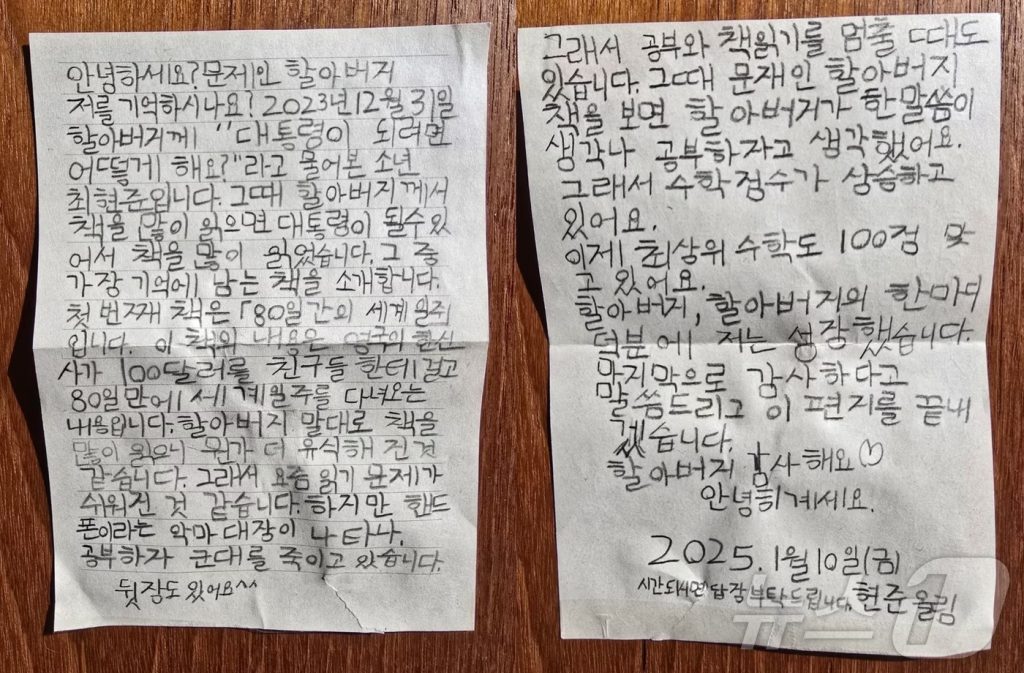 안녕하세요? 문제인 할아버지
저를 기억하시나요? 2023년 12월 31일
할아버지께 "대통령이 되려면
어떻게 해요?"라고 물어본 소년
최현준입니다. 그때 할아버지께서
책을 많이 읽으면 대통령이 될수있
어서 책을 많이 읽었습니다. 그 중
가장 기억에 남는 책을 소개합니다.
첫 번째 책은 「80일간의 세계일주
입니다. 이 책의 내용은 영국의 한신
사가 100달러를 친구들 한테 걸고
80일만에 세계일주를 다녀오는
내용입니다. 할아버지 말대로 책을
많이 읽으니 뭔가 더 유식해 진것
같습니다. 그래서 요즘 읽기 문제가
쉬워진 것 같습니다. 하지만 핸드
폰이라는 악마 대장이 나타나
공부하자 군대를 죽이고 있습니다.
뒷장도 있어요^^
그래서 공부와 책읽기를 멈출 때도
있습니다. 그때 문재인 할아버지
책을 보면 할아버지가 한말씀이
생각나 공부하자고 생각했어요.
그래서 수학점수가 상승하고
있어요.
이제 최상위 수학도 100점 맞
고 있어요.
할아버지, 할아버지의 한마디
덕분에 저는 성장했습니다.
맞지막으로 감사하다고
말씀드리고 이 편지를 끝내
겠습니다.
할아버지 감사해요♡
안녕히계세요.
2025. 1월 10일(금)
시간되시면 답장부탁드립니다. 현준올림
뉴스1